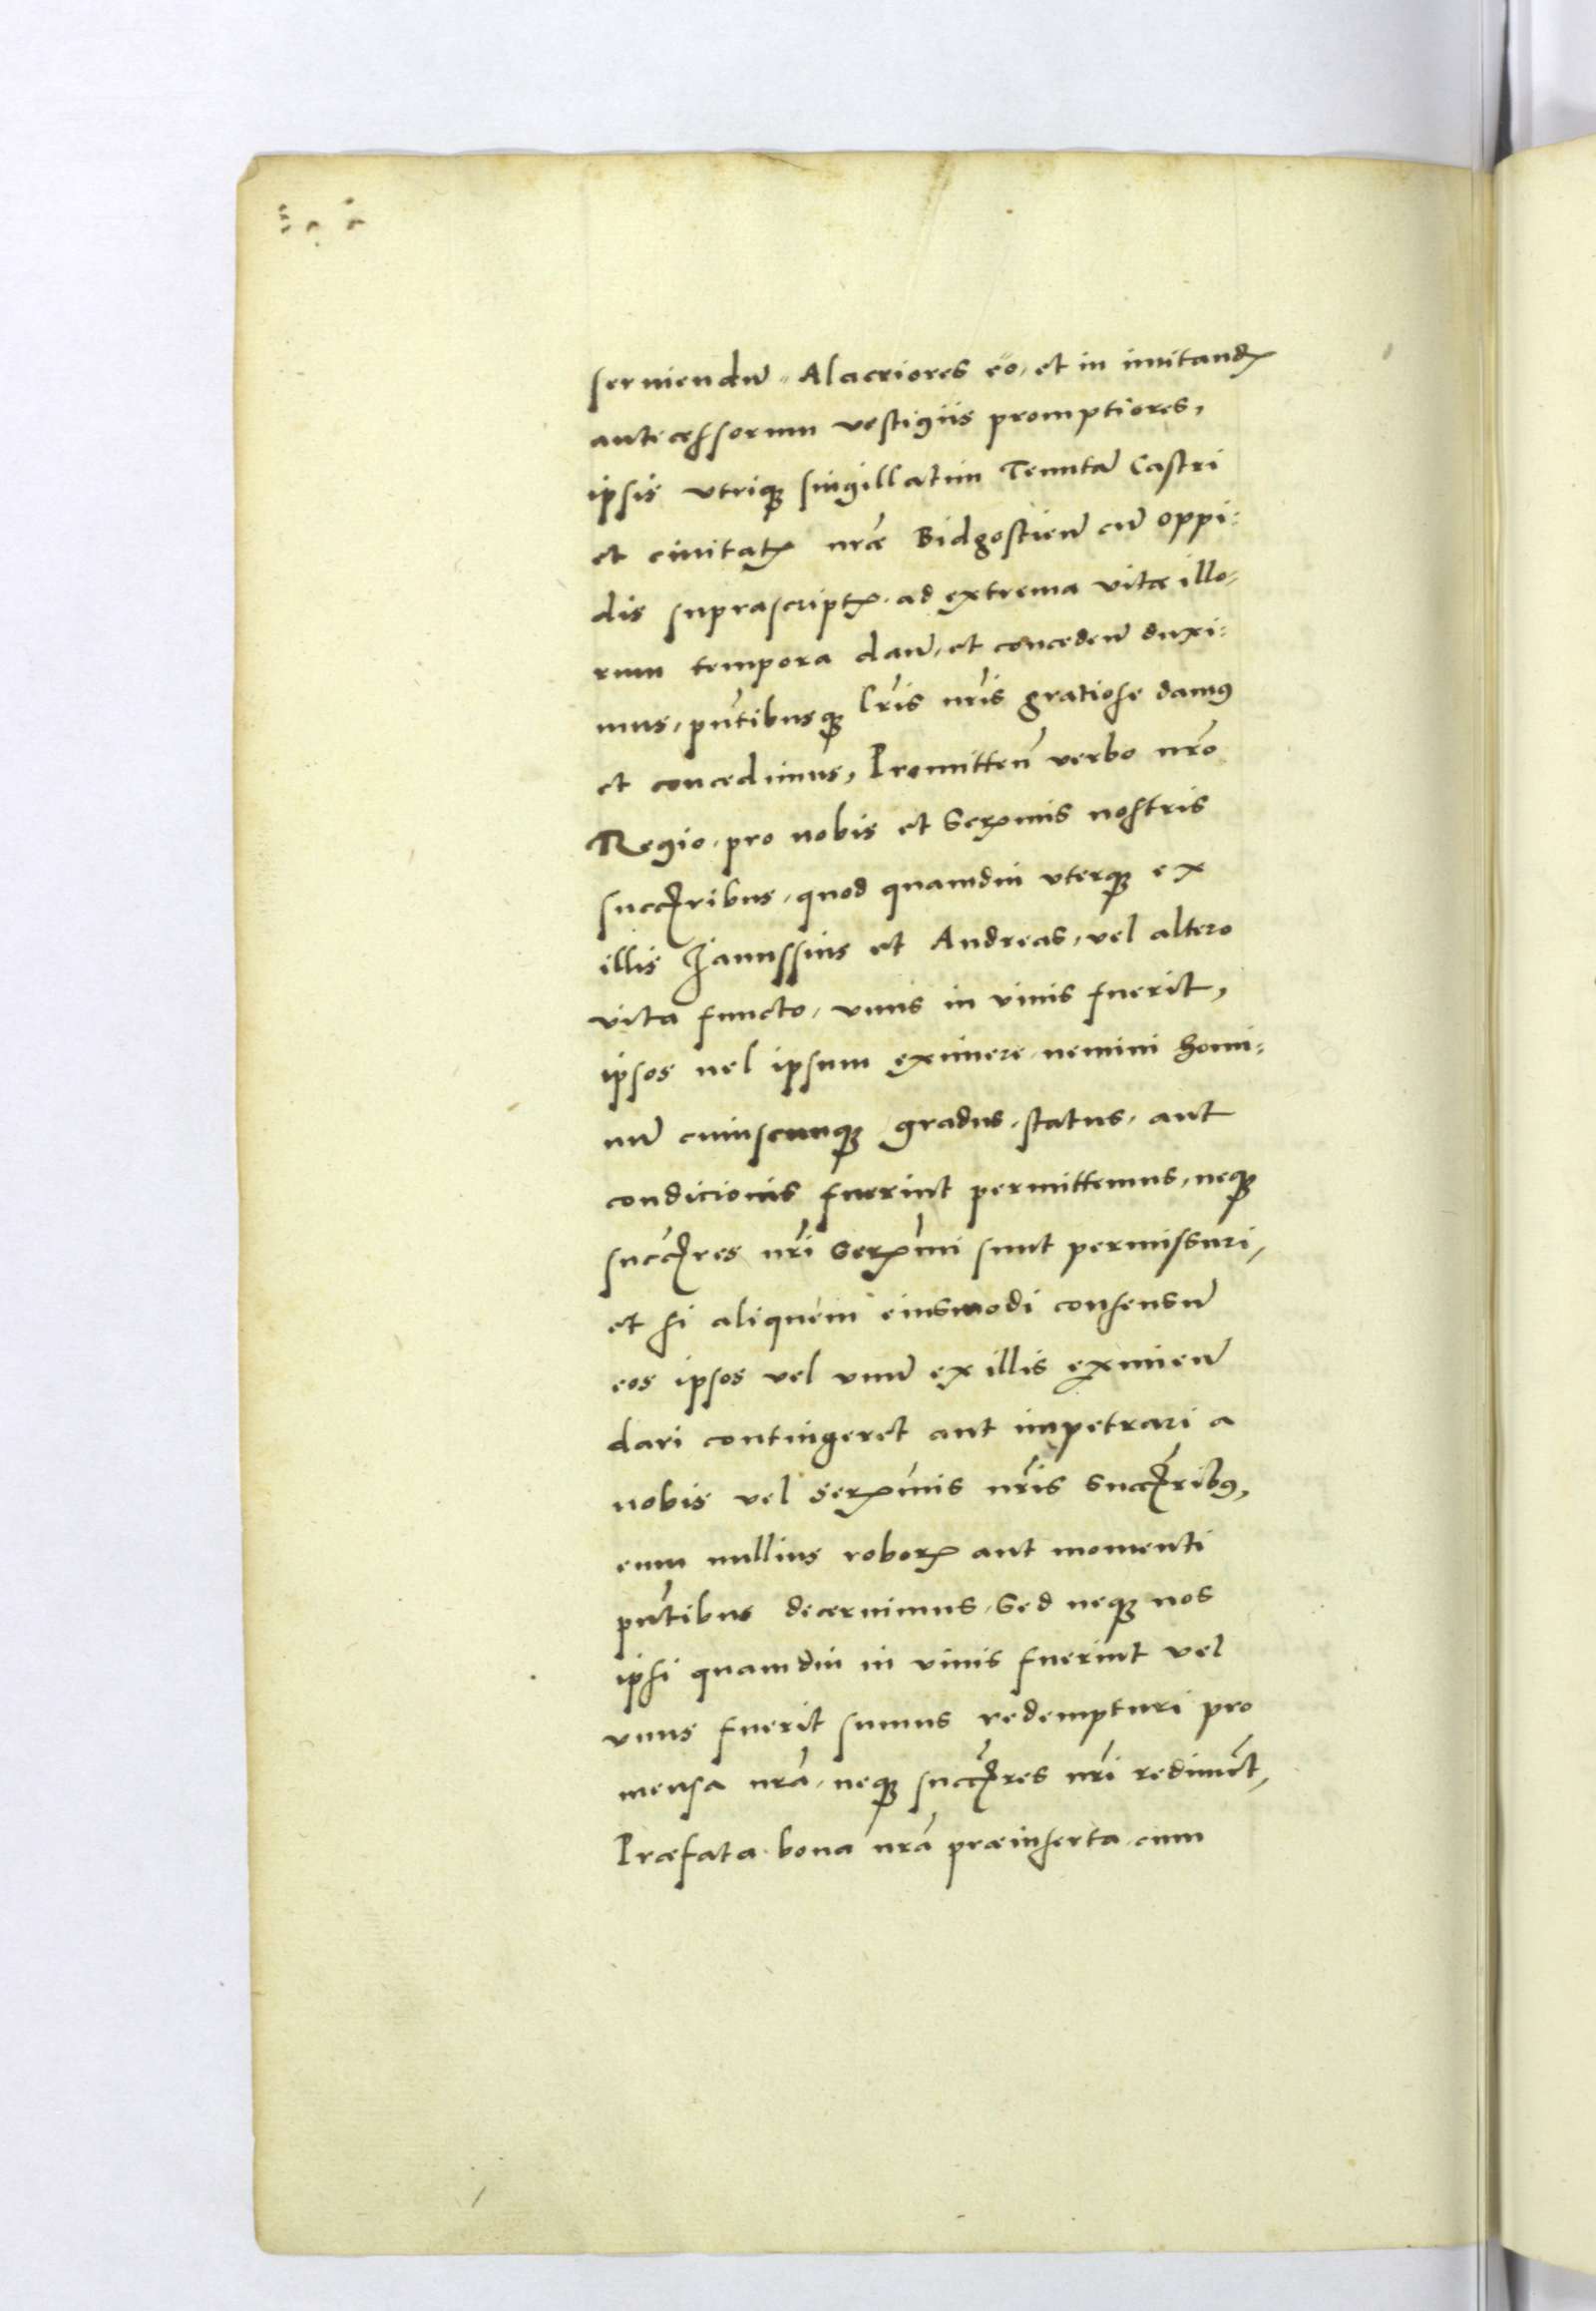 seruiendū. Alacriores eo, et in imitandꝭ
antecessorum vestigiis promptiores,
ipsis vtriqꝫ singillatim Tenutā Castri
et ciuitatꝭ nr̄æ Bidgostien̄ cū oppi:
dis suprascriptꝭ. ad extrema vitæ illo:
rum tempora dan̄, et conceden̄ duxi:
mus, pn̄tibusqꝫ lr̄is nr̄is gratiose damꝰ
et concedimus, Promitten̄ verbo nr̄o
Regio, pro nobis et Serꝭmis nostris
succr̄ibus, quod quamdiu vterqꝫ ex
illis Janussius et Andreas, vel altero
vita functo, vnus in viuis fuerit,
ipsos uel ipsum eximere nemini homi:
nū cuiuscunqꝫ gradus, status, aut
condicionis fuerint permittemus, neqꝫ
succr̄es nr̄i Serꝭmi sunt permissuri,
et si aliquem eiusmodi consensū
eos ipsos vel vnū ex illis eximien̄
dari contingeret aut impetrari a
nobis vel serꝭmis nr̄is succr̄ibꝰ,
eum nullius roborꝭ aut momenti
pn̄tibus decernimus, Sed neqꝫ nos
ipsi quamdiu in viuis fuerint vel
vnus fuerit sumus redempturi pro
mensa nr̄a, neqꝫ succr̄es nr̄i rediment,
Præfata bona nr̄a præinserta cum